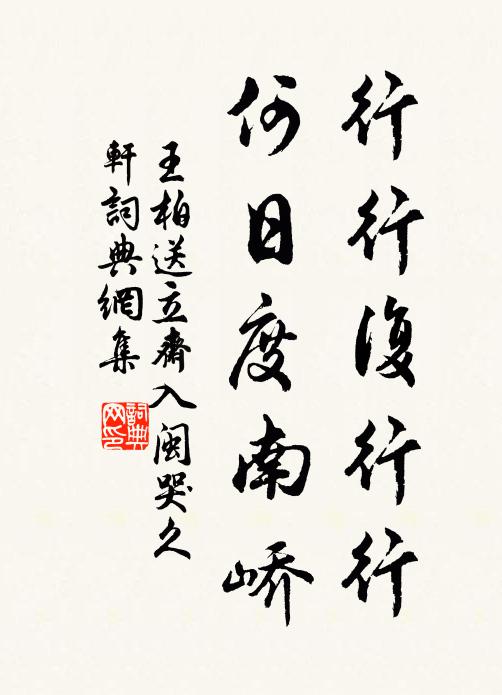 行行復行行
何日度南嶠
王柏送立齋入閩哭久
軒詞典網集
詞典网印